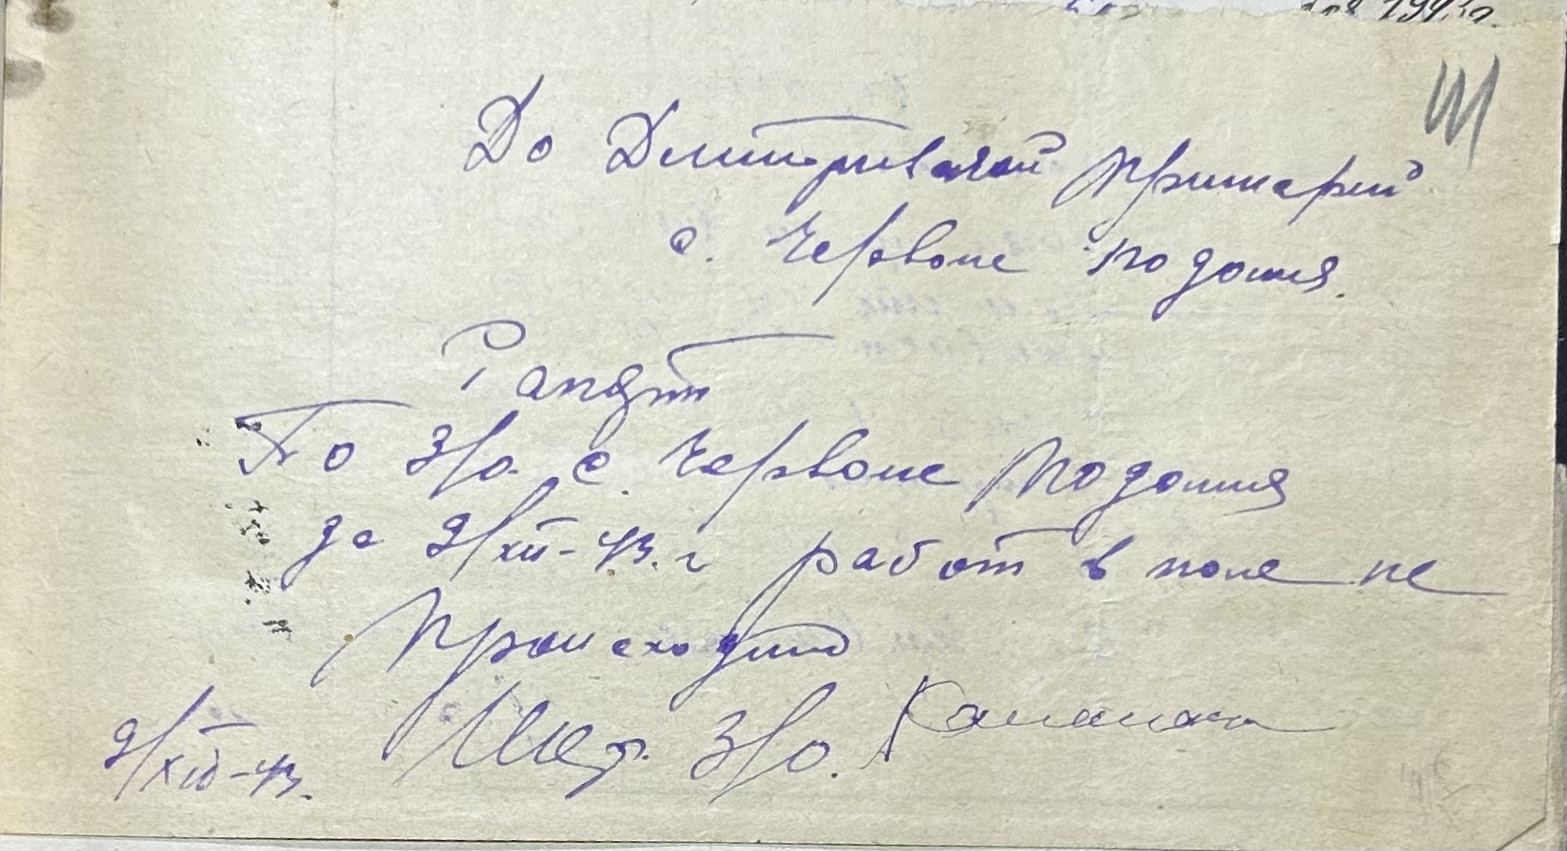 До Дмитривской примарии
с. Червоне подоння.
Рапорт
По З/о. с. Червоне Подоння
до 9/XII-43. г работ в поле не
происходит
9/XII-43. З/о.